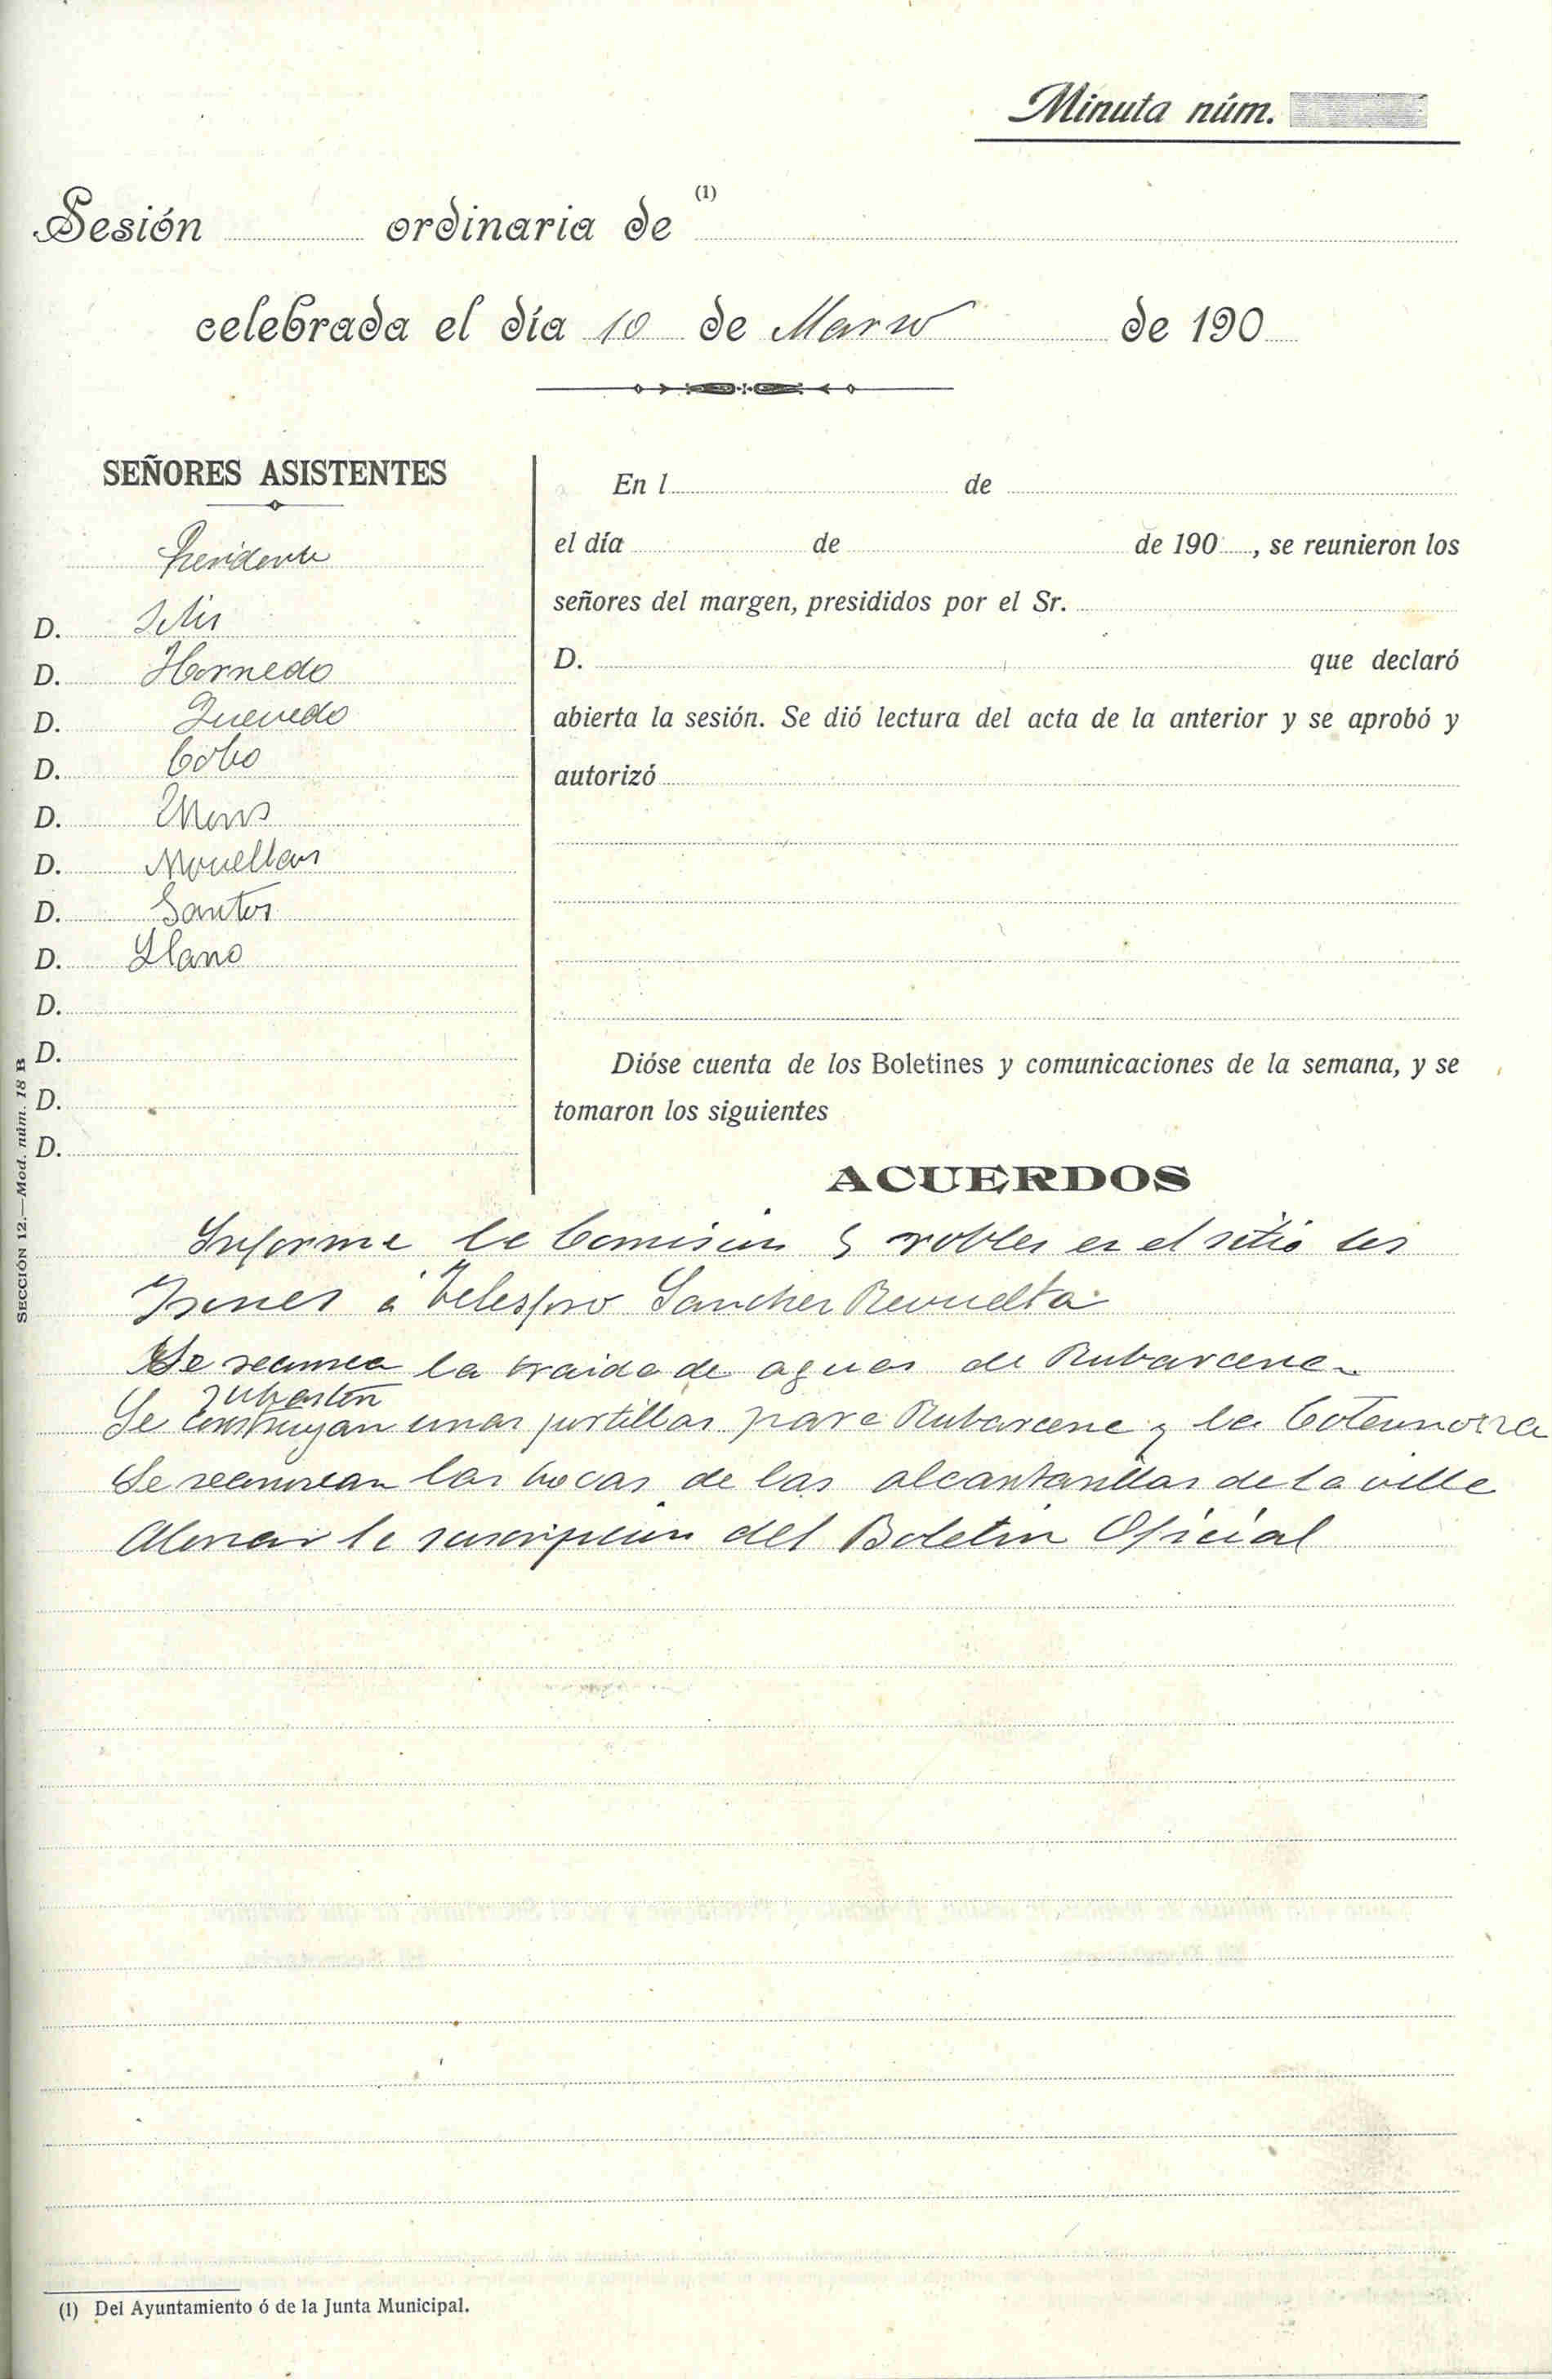 Minuta núm.
Sesión ordinaria de (1)
celebrada el día 10 de Marzo de 190
SEÑORES ASISTENTES
Presidente
D. Solis
D. Hornedo
D. Quevedo
D. Cobo
D.
D. Mouellan
D. Santos
D. Llano
D.
D.
D.
D.
En l de
el día de de 190 , se reunieron los
señores del margen, presididos por el Sr.
D. que declaró
abierta la sesión. Se dió lectura del acta de la anterior y se aprobó y
autorizó
Dióse cuenta de los Boletines y comunicaciones de la semana, y se
tomaron los siguientes
ACUERDOS
Informe la Comisión 5 robles en el sitio los
á Telesforo Sanchez Revuelta
Se reconozca la traida de aguas de Rubarcena
subasten
Se construyan unas portillas para Rubarcena y la
Se reconozcan las bocas de las alcantarillas de la villa
Abonar la suscripcion del Boletin Oficial
SECCIÓN 12.—Mod. núm. 18 B
(1) Del Ayuntamiento ó de la Junta Municipal.